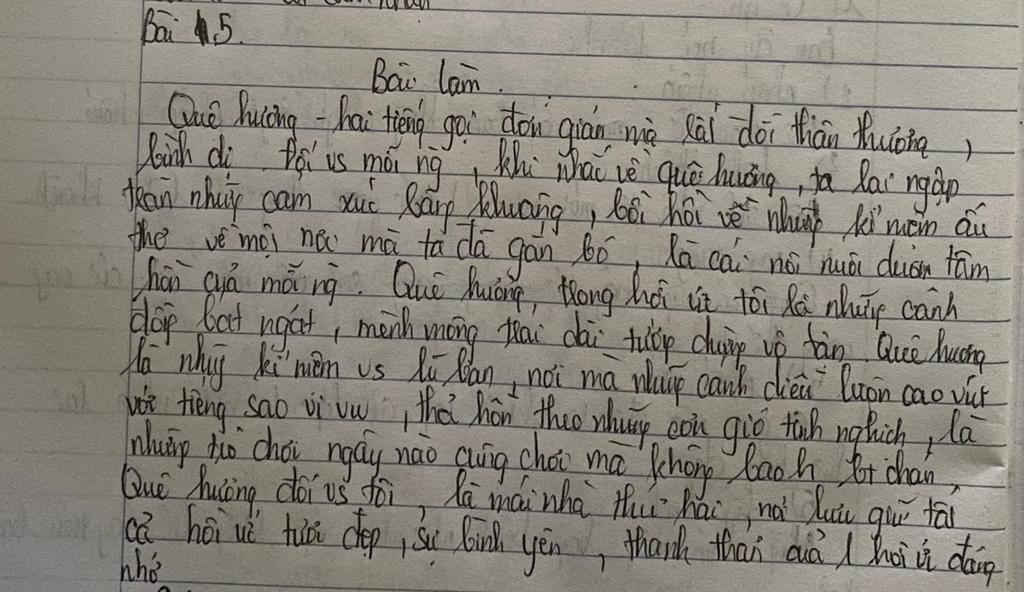 Bài 15.
Bài làm.
Quê hương - hai tiếng gọi đơn giản mà rất đỗi thân thương,
bình dị. Đối vs mỗi ng, khi nhắc về quê hương, ta lại ngập
tràn những cảm xúc bâng khuâng, bồi hồi về những kỉ niệm ấu
thơ về mọi nơi mà ta đã gắn bó, là cái nôi nuôi dưỡng tâm
hồn của mỗi ng. Quê hương, trong hồi ức tôi là những cánh
đồng bát ngát, mênh mông trải dài tưởng chừng vô tận. Quê hương
là những kỉ niệm vs lũ bạn, nơi mà những cánh diều luôn cao vút
với tiếng sáo vi vu, thả hồn theo những cơn gió tinh nghịch, là
những trò chơi ngày nào cũng chơi mà không baoh bt chán.
Quê hương đối vs tôi, là mái nhà thứ hai, nơi lưu giữ tất
cả hồi ức tươi đẹp, sự bình yên, thanh thản của 1 hồi ức đáng
nhớ